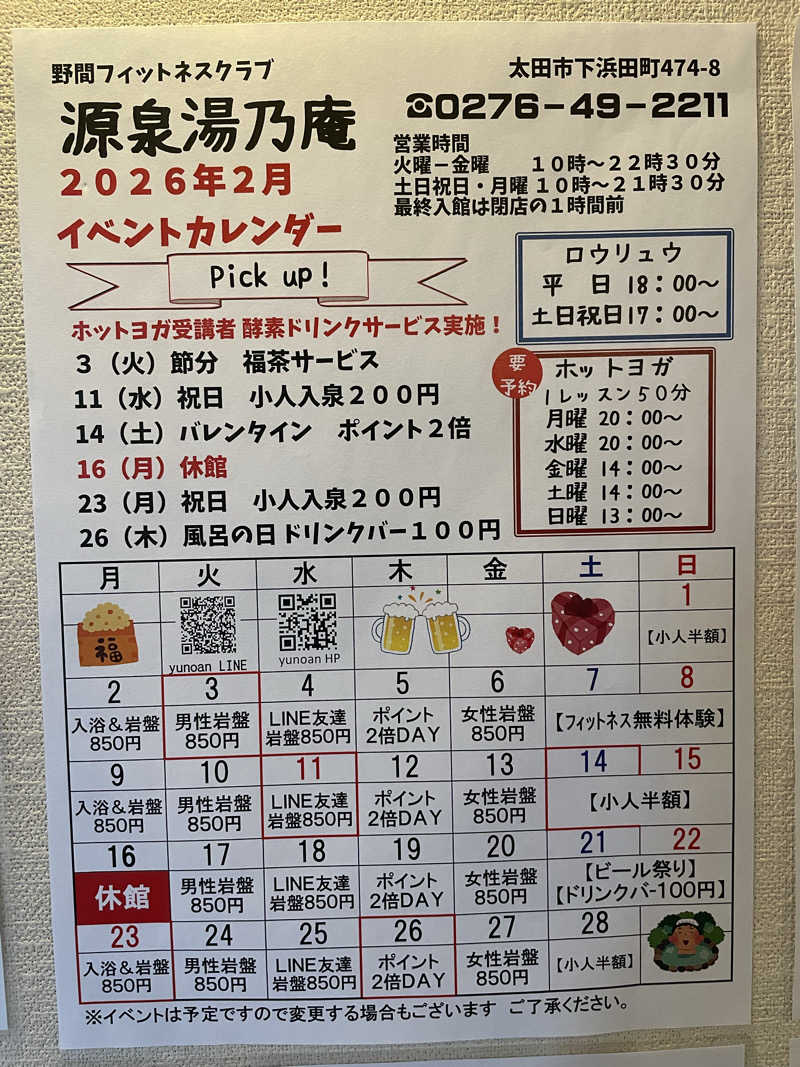 野間フィットネスクラブ
太田市下浜田町474-8
源泉湯乃庵
☎0276-49-2211
営業時間
火曜－金曜 １０時〜２２時３０分
土日祝日・月曜 １０時〜２１時３０分
最終入館は閉店の１時間前
２０２６年２月
イベントカレンダー
Pick up！
ロウリュウ
平　日 18：00〜
土日祝日17：00〜
ホットヨガ受講者 酵素ドリンクサービス実施！
３（火）節分　福茶サービス
11（水）祝日　小人入泉２００円
14（土）バレンタイン　ポイント２倍
16（月）休館
23（月）祝日　小人入泉２００円
26（木）風呂の日 ドリンクバー１００円
要
予約
ホットヨガ
１レッスン５０分
月曜 20：00〜
水曜 20：00〜
金曜 14：00〜
土曜 14：00〜
日曜 13：00〜
月 火 水 木 金 土 日
1
福
yunoan LINE
yunoan HP
【小人半額】
2 3 4 5 6 7 8
入浴＆岩盤 男性岩盤 LINE友達 ポイント 女性岩盤 【フィットネス無料体験】
850円 850円 岩盤850円 2倍DAY 850円
9 10 11 12 13 14 15
入浴＆岩盤 男性岩盤 LINE友達 ポイント 女性岩盤 【小人半額】
850円 850円 岩盤850円 2倍DAY 850円
16 17 18 19 20 21 22
休館 男性岩盤 LINE友達 ポイント 女性岩盤 【ビール祭り】
850円 岩盤850円 2倍DAY 850円 【ドリンクバ-100円】
23 24 25 26 27 28
入浴＆岩盤 男性岩盤 LINE友達 ポイント 女性岩盤 【小人半額】
850円 850円 岩盤850円 2倍DAY 850円
※イベントは予定ですので変更する場合もございます　ご了承ください。